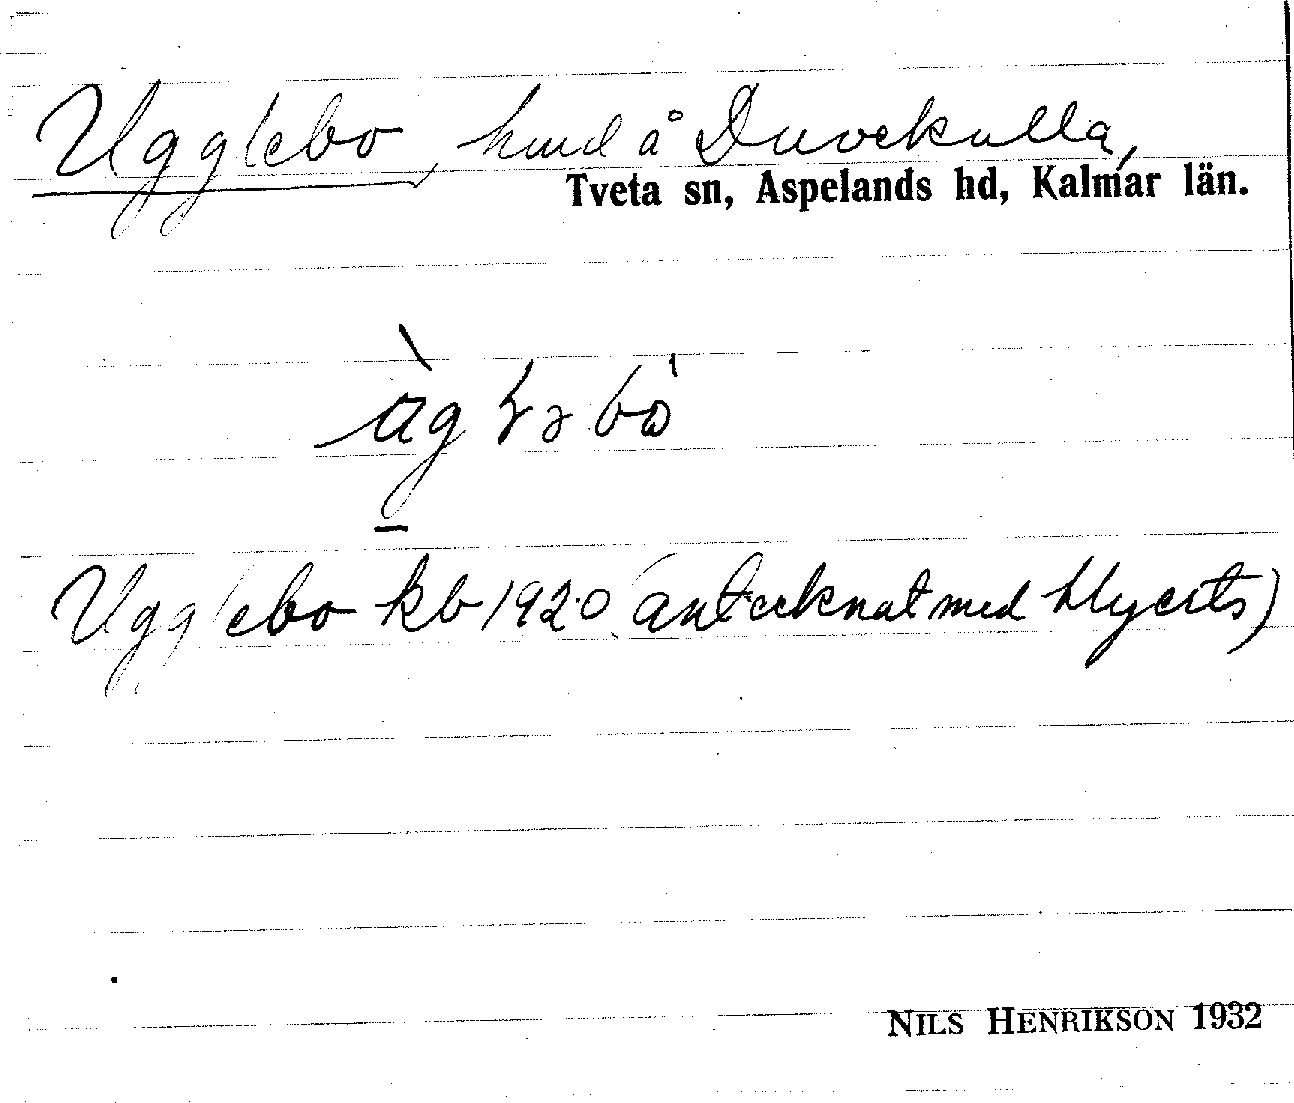 Ugglebo, hmd å Duvekulla,
Tveta sn, Aspelands hd, Kalmar län.
Ugglebo kb 1920 (antecknat med blyerts)
NILS HENRIKSON 1932